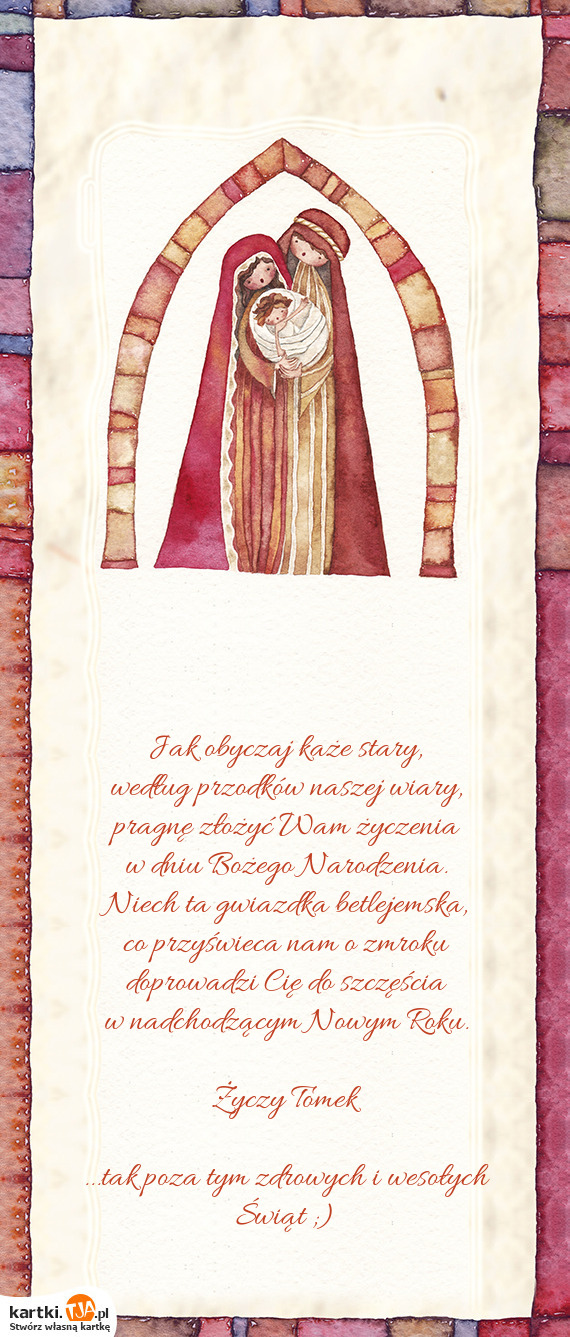 Jak obyczaj każe stary,
według przodków naszej wiary,
pragnę złożyć Wam życzenia
w dniu Bożego Narodzenia.
Niech ta gwiazdka betlejemska,
co przyświeca nam o zmroku
doprowadzi Cię do szczęścia
w nadchodzącym Nowym Roku.
Życzy Tomek
...tak poza tym zdrowych i wesołych
Świąt ;)
kartki.TJA.pl
Stwórz własną kartkę